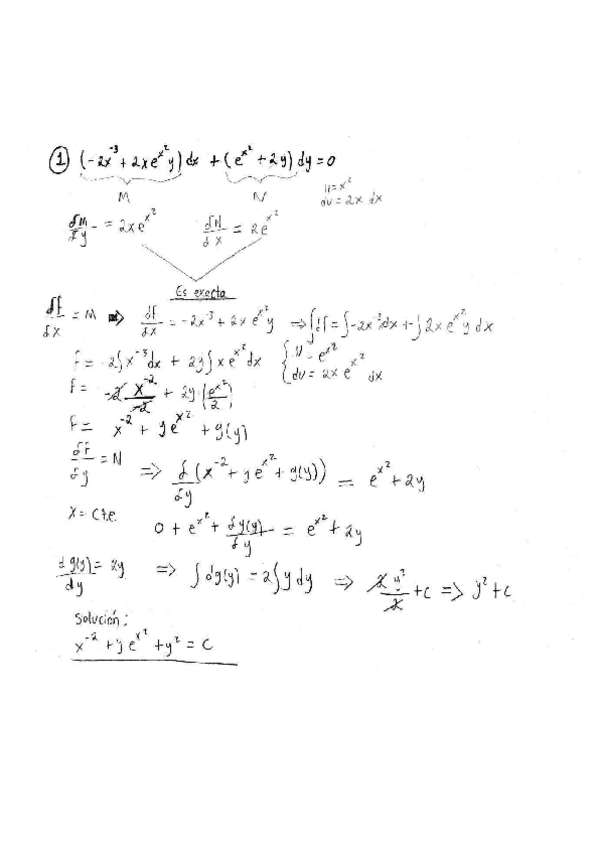 ① (-2x⁻³ + 2xe^(x²)y) dx + (e^(x²) + 2y) dy = 0
M N u = x²
du = 2x dx
δM/δy = 2xe^(x²) δN/δx = 2e^(x²)
Es exacta
δf/δx = M ⇒ δf/δx = -2x⁻³ + 2xe^(x²)y ⇒ ∫δf = ∫-2x⁻³dx + ∫2xe^(x²)y dx
f = -2∫x⁻³dx + 2y∫xe^(x²)dx { u = e^(x²)
du = 2xe^(x²) dx
f = -2 x⁻²/-2 + 2y (e^(x²)/2)
f = x⁻² + ye^(x²) + g(y)
δf/δy = N ⇒ δ/δy (x⁻² + ye^(x²) + g(y)) = e^(x²) + 2y
x = cte
0 + e^(x²) + δg(y)/δy = e^(x²) + 2y
dg(y)/dy = 2y ⇒ ∫dg(y) = 2∫y dy ⇒ 2 y²/2 + c ⇒ y² + c
Solución:
x⁻² + ye^(x²) + y² = C